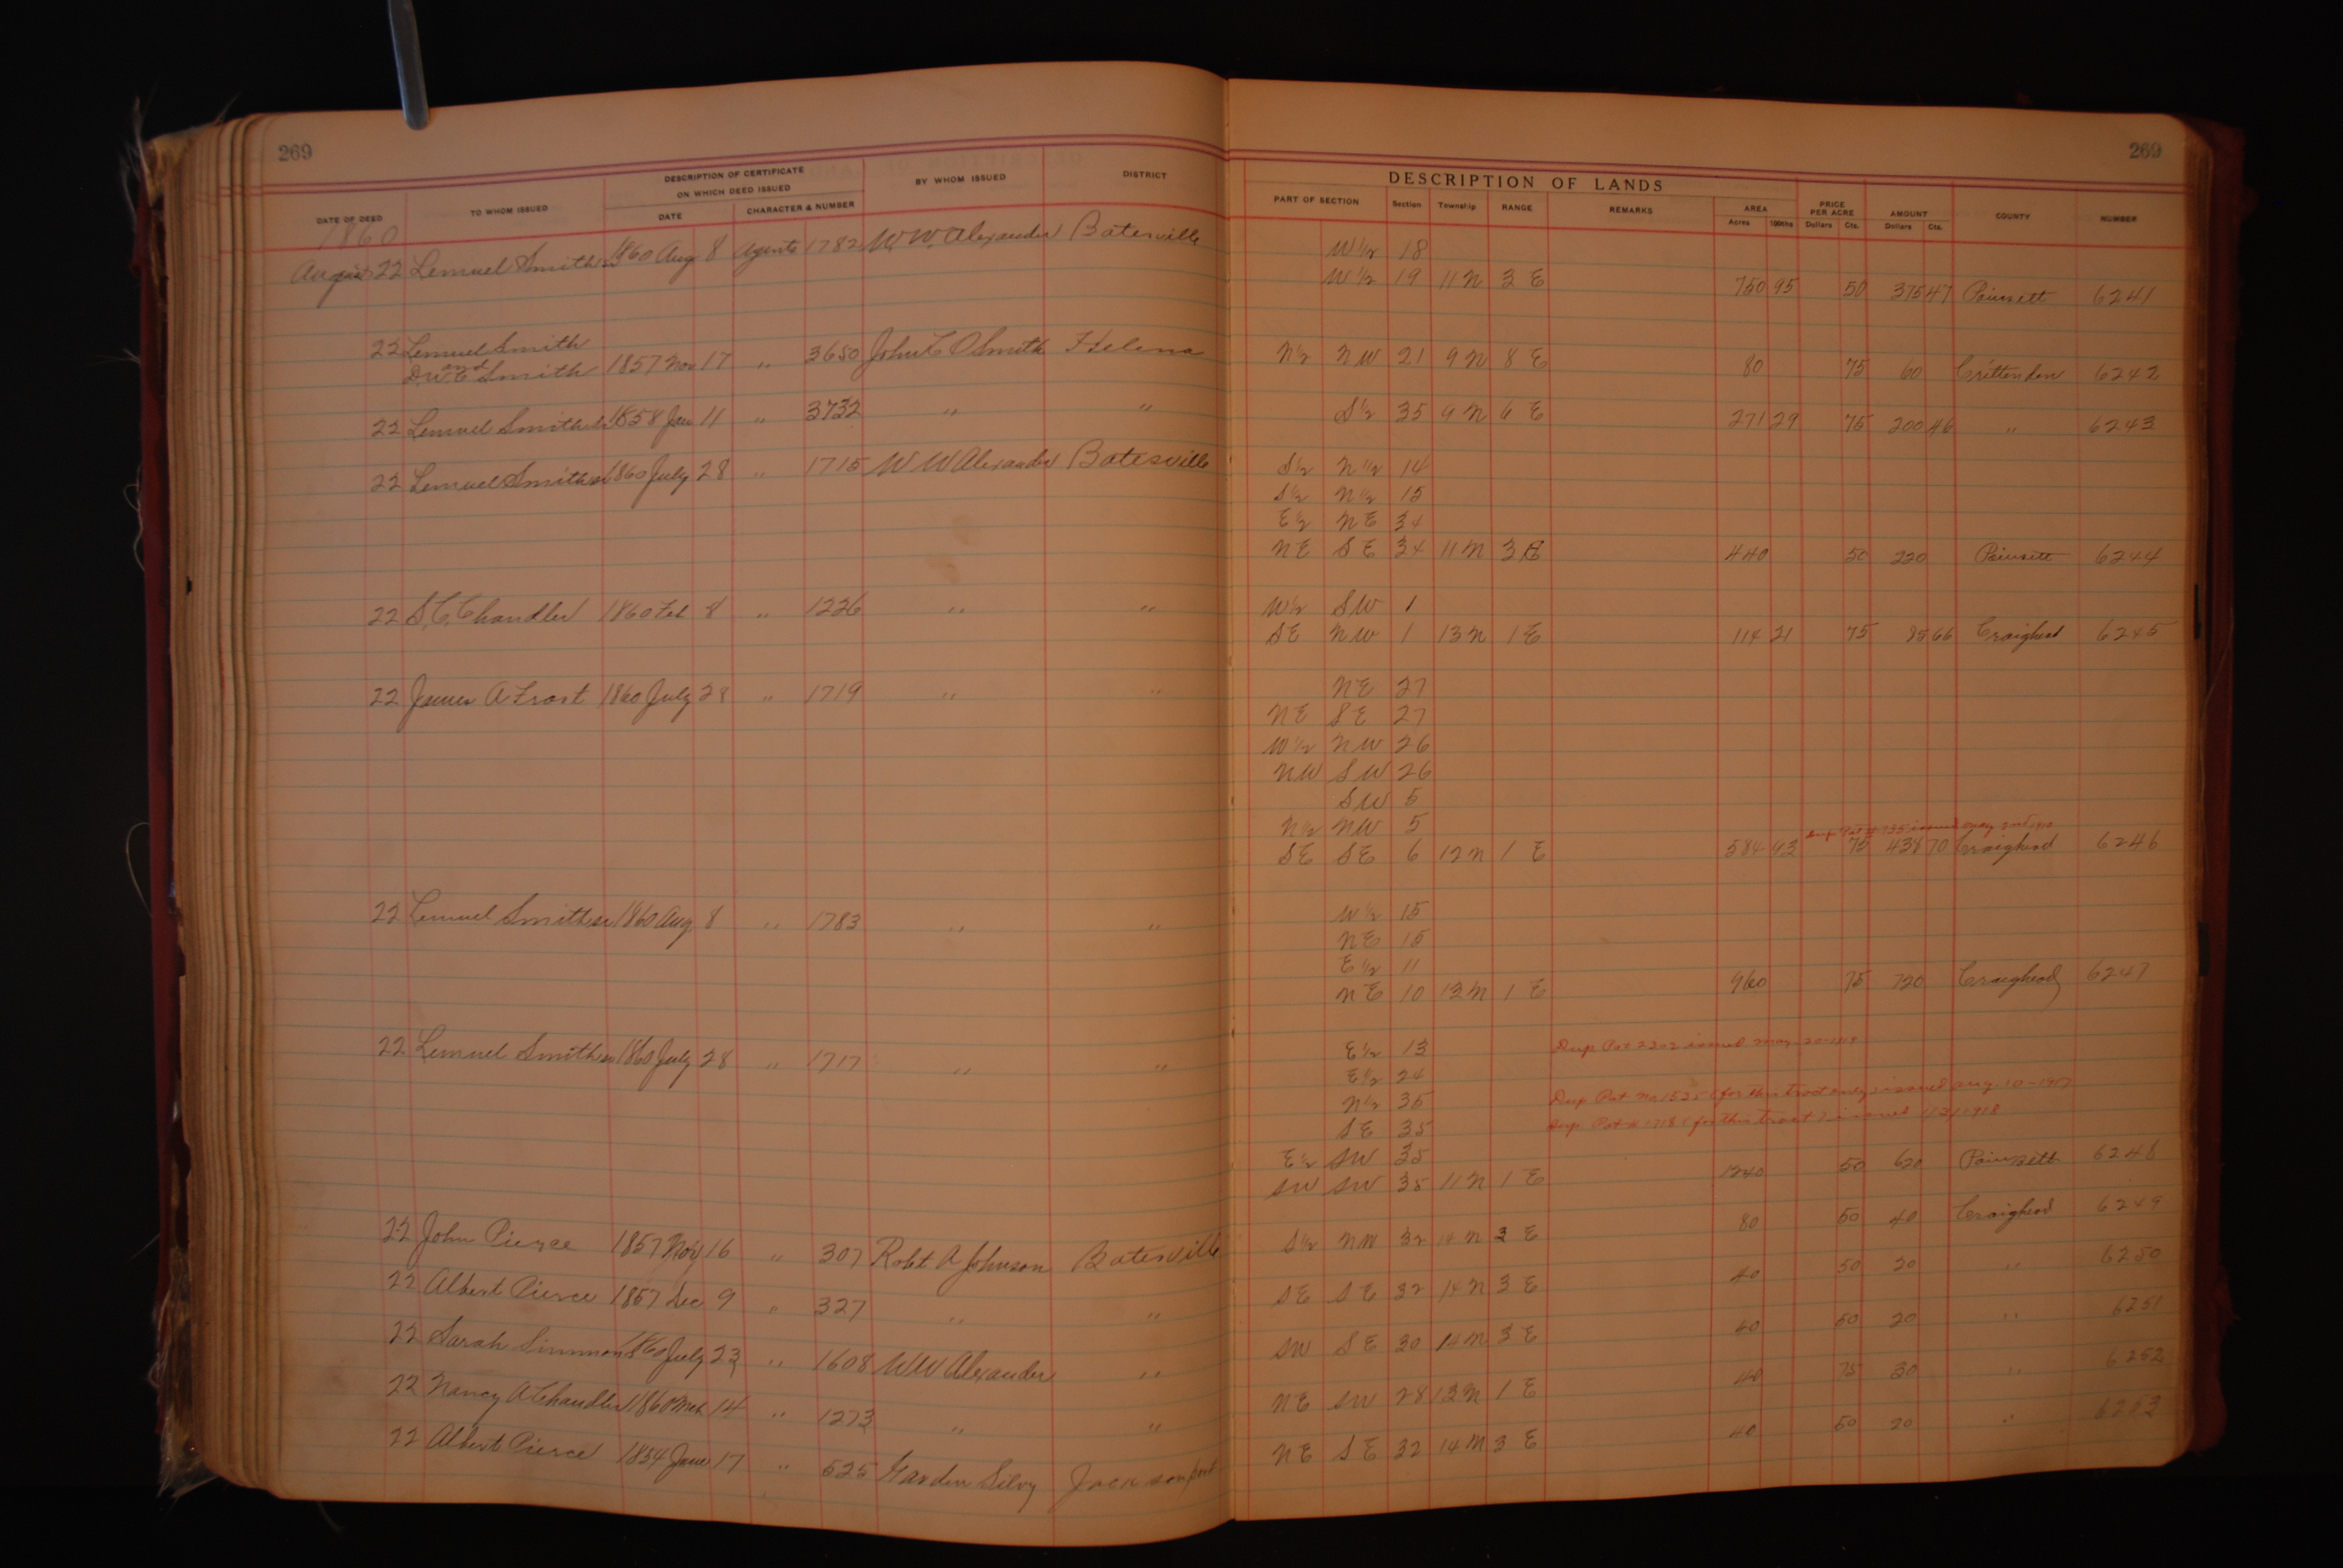 269
DATE OF DEED TO WHOM ISSUED DESCRIPTION OF CERTIFICATE ON WHICH DEED ISSUED DATE CHARACTER & NUMBER BY WHOM ISSUED DISTRICT
1860
August 22 Lemuel Smith sr 1860 Aug 8 Agents 1782 W W Alexander Batesville
22 Lemuel Smith
and
D.W.C Smith 1857 Nov 17 " 3650 John C O Smith Helena
22 Lemuel Smith sr 1858 Jan 11 " 3732 " "
22 Lemuel Smith sr 1860 July 28 " 1715 W W Alexander Batesville
22 S. C. Chandler 1860 Feb 8 " 1226 " "
22 James A Frost 1860 July 28 " 1719 " "
22 Lemuel Smith sr 1860 Aug 8 " 1783 " "
22 Lemuel Smith sr 1860 July 28 " 1717 " "
22 John Pierce 1857 Nov 16 " 307 Robt A Johnson Batesville
22 Albert Pierce 1857 Dec 9 " 327 " "
22 Sarah Simmons 1860 July 23 " 1608 W W Alexander "
22 Nancy A Chandler 1860 Mch 14 " 1273 " "
22 Albert Pierce 1854 June 17 " 525 Jacksonport
269
DESCRIPTION OF LANDS
PART OF SECTION Section Township RANGE REMARKS AREA Acres 100ths PRICE PER ACRE Dollars Cts. AMOUNT Dollars Cts. COUNTY NUMBER
W 1/2 18
W 1/2 19 11 N 3 E 750 95 50 375 47 Poinsett 6241
N 1/2 N W 21 9 N 8 E 80 75 60 Crittenden 6242
S 1/2 35 9 N 6 E 271 29 75 200 46 " 6243
S 1/2 N 1/2 14
S 1/2 N 1/2 15
E 1/2 N E 34
N E S E 34 11 N 3 E 440 50 220 Poinsett 6244
W 1/2 S W 1
S E N W 1 13 N 1 E 114 21 75 85 66 Craighead 6245
N E 27
N E S E 27
W 1/2 N W 26
N W S W 26
S W 5
N 1/2 N W 5
S E S E 6 12 N 1 E 584 93 75 438 70 Craighead 6246
W 1/2 15
N E 15
E 1/2 11
N E 10 13 N 1 E 960 75 720 Craighead 6247
E 1/2 13 Dup Pat 2202 issued May
E 1/2 24
N 1/2 35 Dup Pat No 1525 (for this tract only) issued Aug. 10-1917
S E 35 Dup. Pat # 1718 (for this tract) issued 1918
E 1/2 S W 35
S W S W 35 11 N 1 E 1240 50 620 Poinsett 6248
S 1/2 N W 32 14 N 3 E 80 50 40 Craighead 6249
S E S E 32 14 N 3 E 40 50 20 " 6250
S W S E 30 14 N 3 E 40 50 20 " 6251
N E S W 28 13 N 1 E 40 75 30 " 6252
N E S E 32 14 N 3 E 40 50 20 " 6253